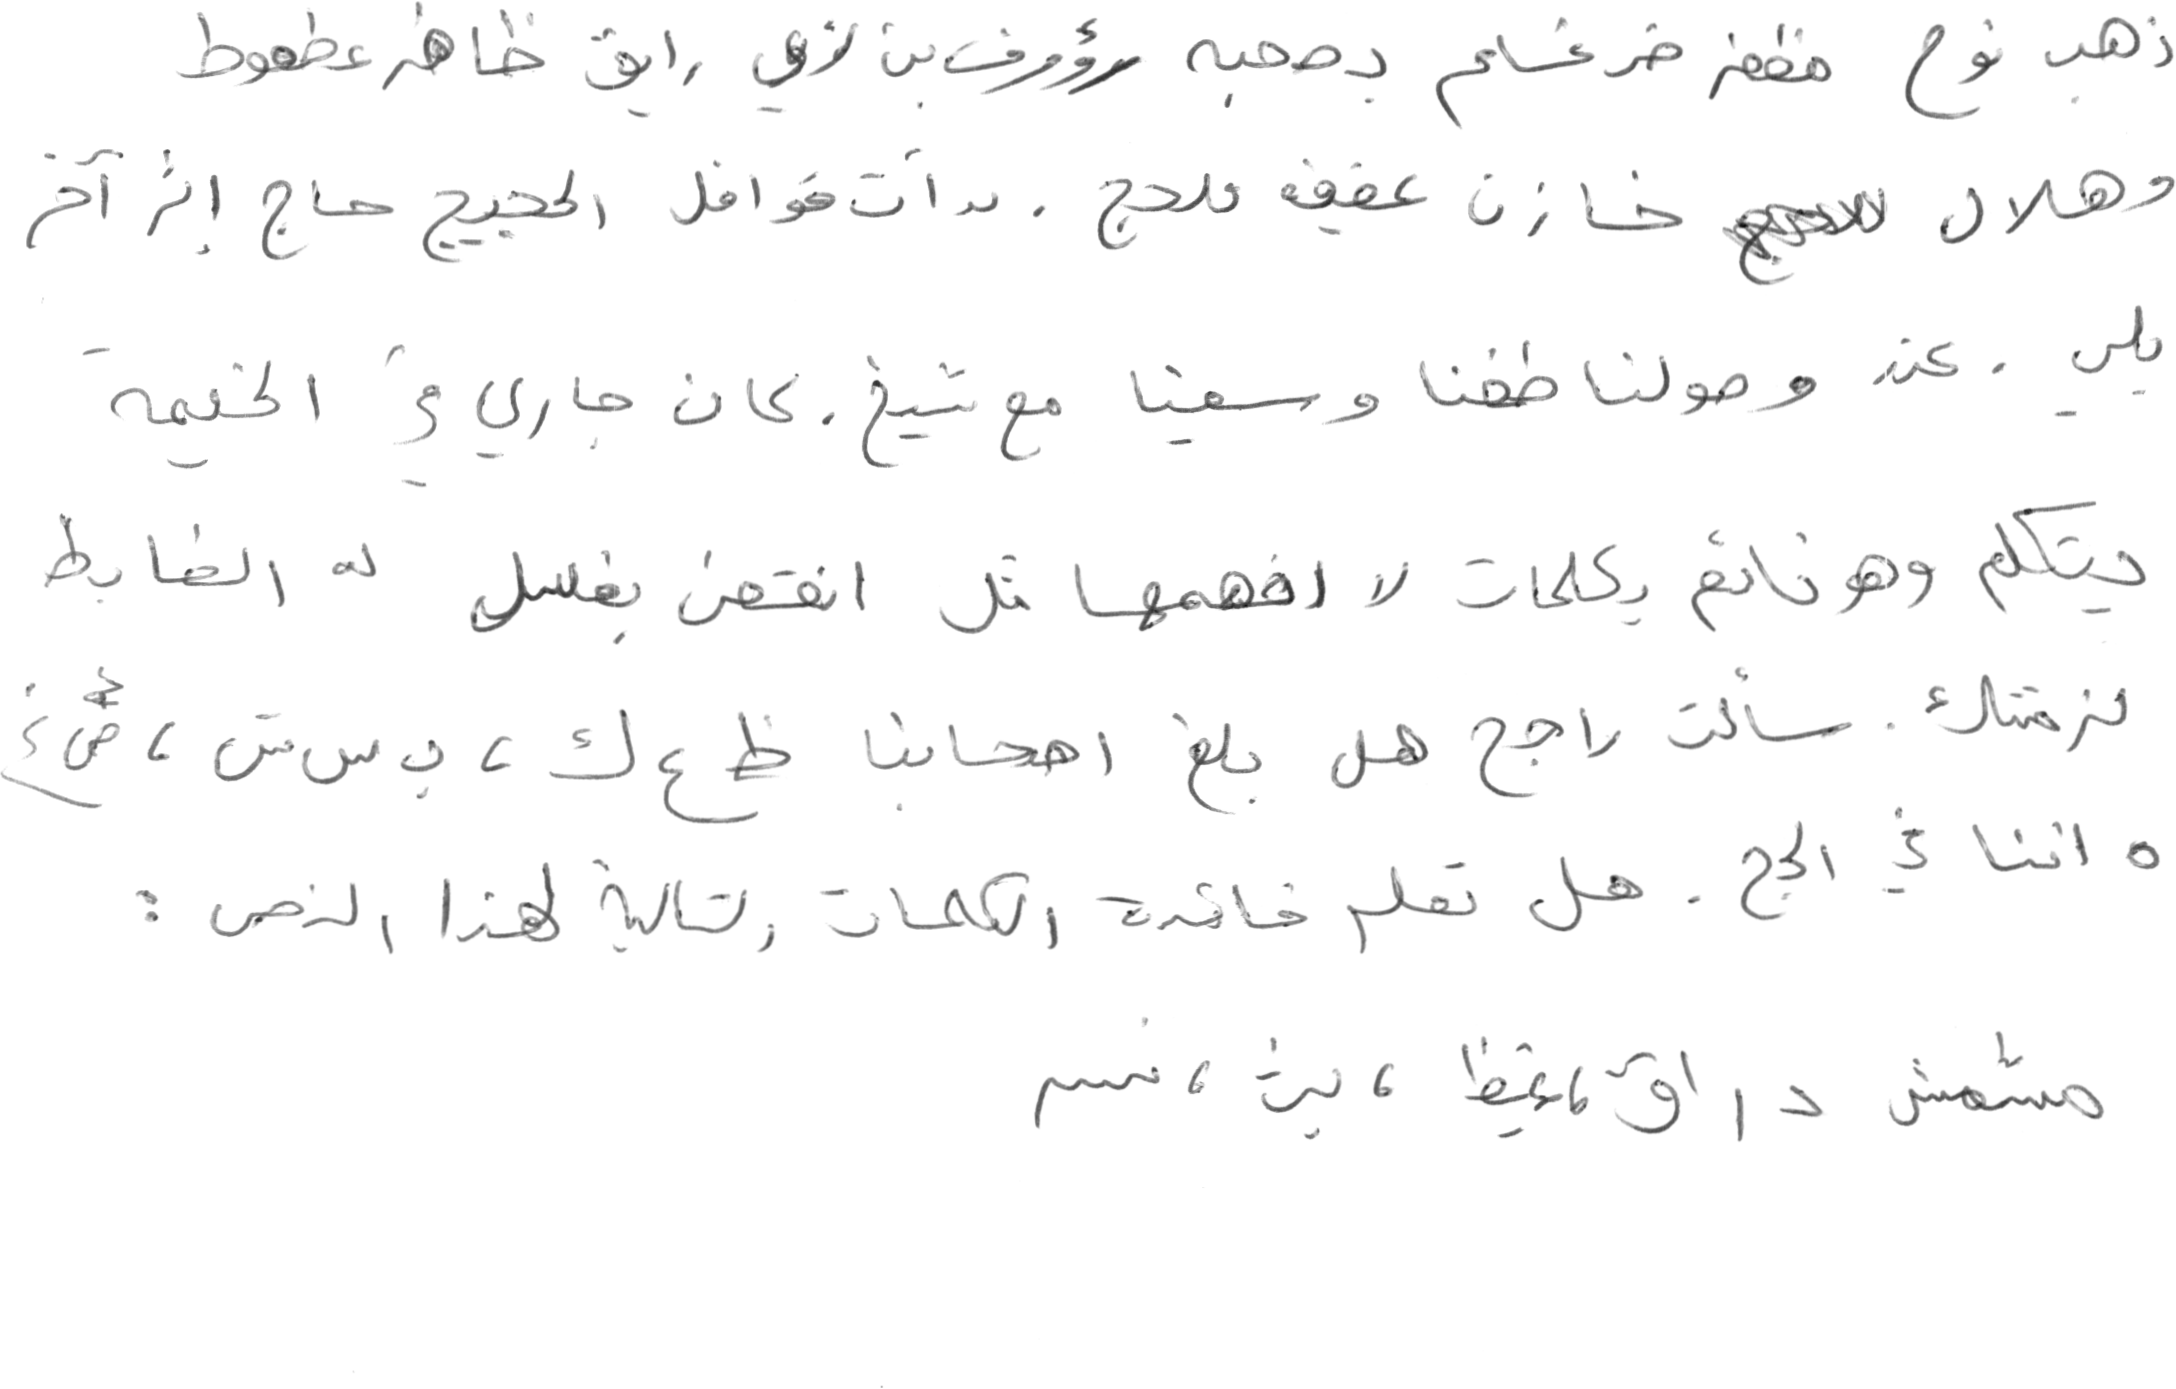 ذهب نوح مظفر ضرغام بصحبه رؤوف بن لؤي رايق ظاهر عطعوط
وهلال خازن عفيفه للحج . بدأت قوافل الحجيج حاج إثر آخر
يلي . عند وصولنا طفنا وسعينا مع شيخ . كان جاري في الخيمة
يتكلم وهو نائم بكلمات لا افهمها مثل انقضن بغسل له الضابط
لزمتك . سألت راجح هل بلغ اصحابنا ظ ع ك ، ب س ش ، ض غ
ه اننا في الحج . هل تعلم فائدة الكلمات التالية لهذا النص :
مشمش د ا ق ، غيظ ، يرث ، نسم